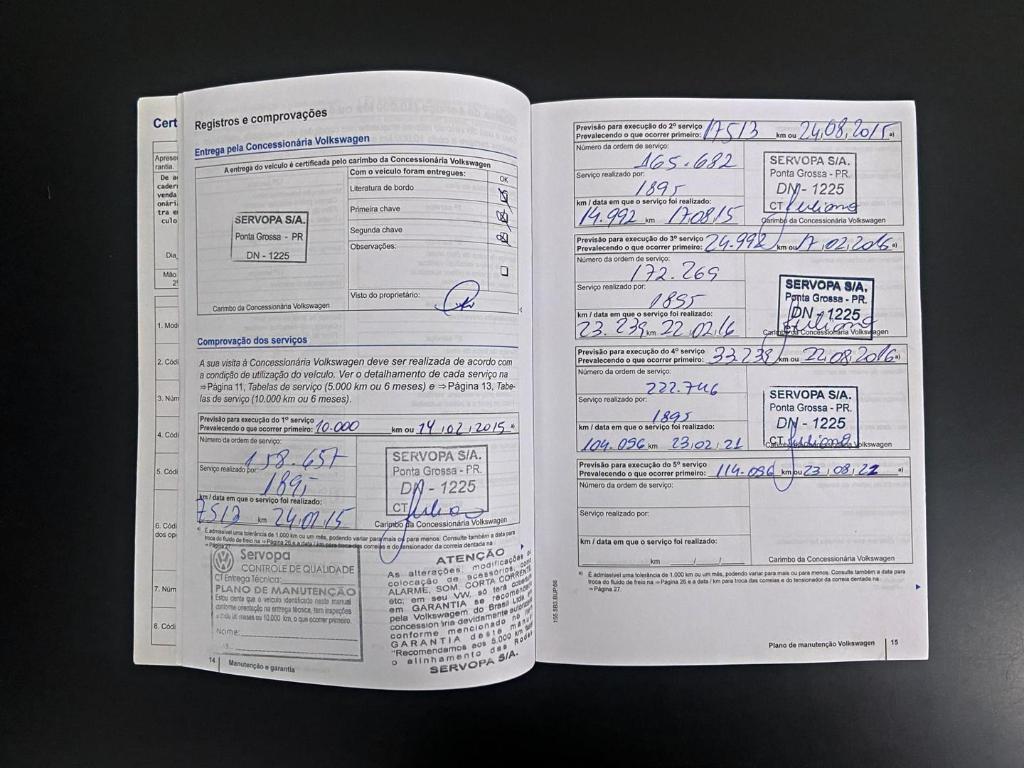 Cert
Aprese
rantia.
De a
cader
venda
onári
tra e
culo
Dia,
Mão
1. Mod
2. Códi
3. Núm
4. Códi
5. Códi
6. Códi
dos op
7. Núm
8. Códi
Registros e comprovações
Entrega pela Concessionária Volkswagen
A entrega do veículo é certificada pelo carimbo da Concessionária Volkswagen
Com o veículo foram entregues:
OK
Literatura de bordo
Primeira chave
Segunda chave
Observações:
SERVOPA S/A.
Ponta Grossa - PR
DN - 1225
Carimbo da Concessionária Volkswagen
Visto do proprietário:
Comprovação dos serviços
A sua visita à Concessionária Volkswagen deve ser realizada de acordo com
a condição de utilização do veículo. Ver o detalhamento de cada serviço na
⇒ Página 11, Tabelas de serviço (5.000 km ou 6 meses) e ⇒ Página 13, Tabe-
las de serviço (10.000 km ou 6 meses).
Previsão para execução do 1º serviço
Prevalecendo o que ocorrer primeiro: 10.000 km ou 14/02/2015 a)
Número da ordem de serviço:
158.657
Serviço realizado por:
1895
km / data em que o serviço foi realizado:
7513 km 24.02/15
SERVOPA S/A.
Ponta Grossa - PR.
DN - 1225
CT
Carimbo da Concessionária Volkswagen
a) É admissível uma tolerância de 1.000 km ou um mês, podendo variar para mais ou para menos. Consulte também a data para
troca do fluido de freio na ⇒ Página 26 e a data / km para troca das correias e do tensionador da correia dentada na
⇒ Página 27.
Servopa
CONTROLE DE QUALIDADE
CT Entrega Técnica:
PLANO DE MANUTENÇÃO
Estou ciente que o veículo identificado neste manual
conforme orientação na entrega técnica, tem inspeções
a cada 06 meses ou 10.000 km, o que ocorrer primeiro.
Nome:
ATENÇÃO
As alterações, modificações ou
colocação de acessórios, com
ALARME, SOM, CORTA CORRENTE
etc, em seu VW, só terá cobertura
em GARANTIA se recomendado
pela Volkswagen do Brasil Ltda.
concessionária devidamente autorizada
conforme mencionado no item
GARANTIA deste manual
"Recomendamos aos 5.000 km fazer
o alinhamento das Rodas
SERVOPA S/A.
14 Manutenção e garantia
Previsão para execução do 2º serviço
Prevalecendo o que ocorrer primeiro: 17513 km ou 24.08.2015 a)
Número da ordem de serviço:
165.682
Serviço realizado por:
1895
km / data em que o serviço foi realizado:
14.992 km 17.08.15
SERVOPA S/A.
Ponta Grossa - PR.
DN - 1225
CT Juliano
Carimbo da Concessionária Volkswagen
Previsão para execução do 3º serviço
Prevalecendo o que ocorrer primeiro: 24.992 km ou 17/02/2016 a)
Número da ordem de serviço:
172.269
Serviço realizado por:
1895
km / data em que o serviço foi realizado:
23.239 km 22.02/16
SERVOPA S/A.
Ponta Grossa - PR.
DN - 1225
Juliano
Carimbo da Concessionária Volkswagen
Previsão para execução do 4º serviço
Prevalecendo o que ocorrer primeiro: 33.239 km ou 22.08.2016 a)
Número da ordem de serviço:
222.746
Serviço realizado por:
1895
km / data em que o serviço foi realizado:
104.096 km 23/02/21
SERVOPA S/A.
Ponta Grossa - PR.
DN - 1225
CT Juliano
Carimbo da Concessionária Volkswagen
Previsão para execução do 5º serviço
Prevalecendo o que ocorrer primeiro: 114.096 km ou 23/08/21 a)
Número da ordem de serviço:
Serviço realizado por:
km / data em que o serviço foi realizado:
km / /
Carimbo da Concessionária Volkswagen
a) É admissível uma tolerância de 1.000 km ou um mês, podendo variar para mais ou para menos. Consulte também a data para
troca do fluido de freio na ⇒ Página 26 e a data / km para troca das correias e do tensionador da correia dentada na
⇒ Página 27.
Plano de manutenção Volkswagen 15